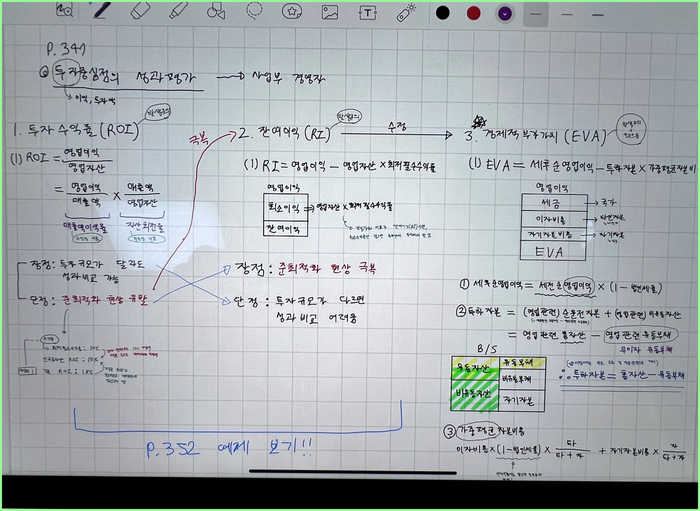 P.341
투자중심점의 성과평가 → 사업부 경영자
이익, 투자액
1. 투자수익률 (ROI)
발생주의
극복
2. 잔여이익 (RI)
발생주의
수정
3. 경제적부가가치 (EVA)
(1) ROI = 영업이익 / 영업자산
= 영업이익 / 매출액 × 매출액 / 영업자산
매출액이익률 자산회전율
장점 : 투자규모가 달라도
성과비교 가능
단점 : 준최적화 현상 유발
(1) RI = 영업이익 - 영업자산 × 최저필수수익률
영업이익
최소이익 → 영업자산 × 최저필수수익률
잔여이익
장점 : 준최적화 현상 극복
단점 : 투자규모가 다르면
성과비교 어려움
(1) EVA = 세후순영업이익 - 투하자본 × 가중평균자본비
영업이익
세금 → 국가
이자비용 → 타인자본
자기자본비용 → 자기자본
EVA
① 세후순영업이익 = 세전순영업이익 × (1 - 법인세율)
② 투하자본 = (영업관련) 순운전자본 + (영업관련) 비유동자산
= 영업관련 총자산 - 영업관련 유동부채
무이자 유동부채
∴ 투하자본 = 총자산 - 유동부채
B/S
유동자산 유동부채
비유동부채
비유동자산 자기자본
③ 가중평균 자본비용
이자비용 × (1 - 법인세율) × 타 / 타+자 + 자기자본비용 × 자 / 타+자
P.352 예제 보기!!